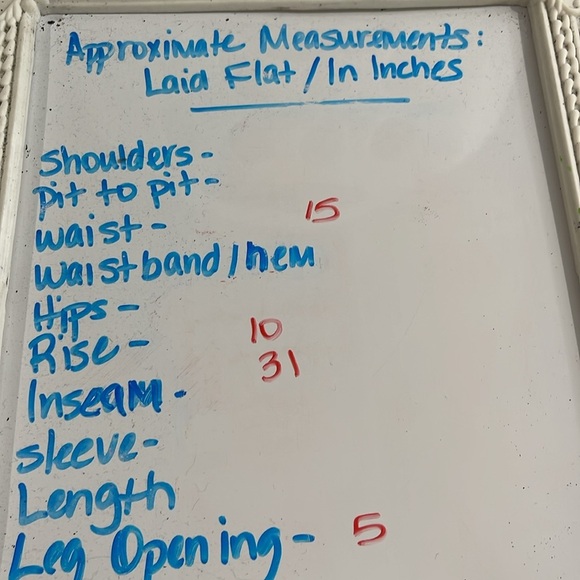 Approximate Measurements:
Laid Flat / In Inches
Shoulders-
pit to pit-
waist- 15
waistband/hem
Hips-
Rise- 10
Inseam- 31
sleeve-
Length
Leg Opening- 5